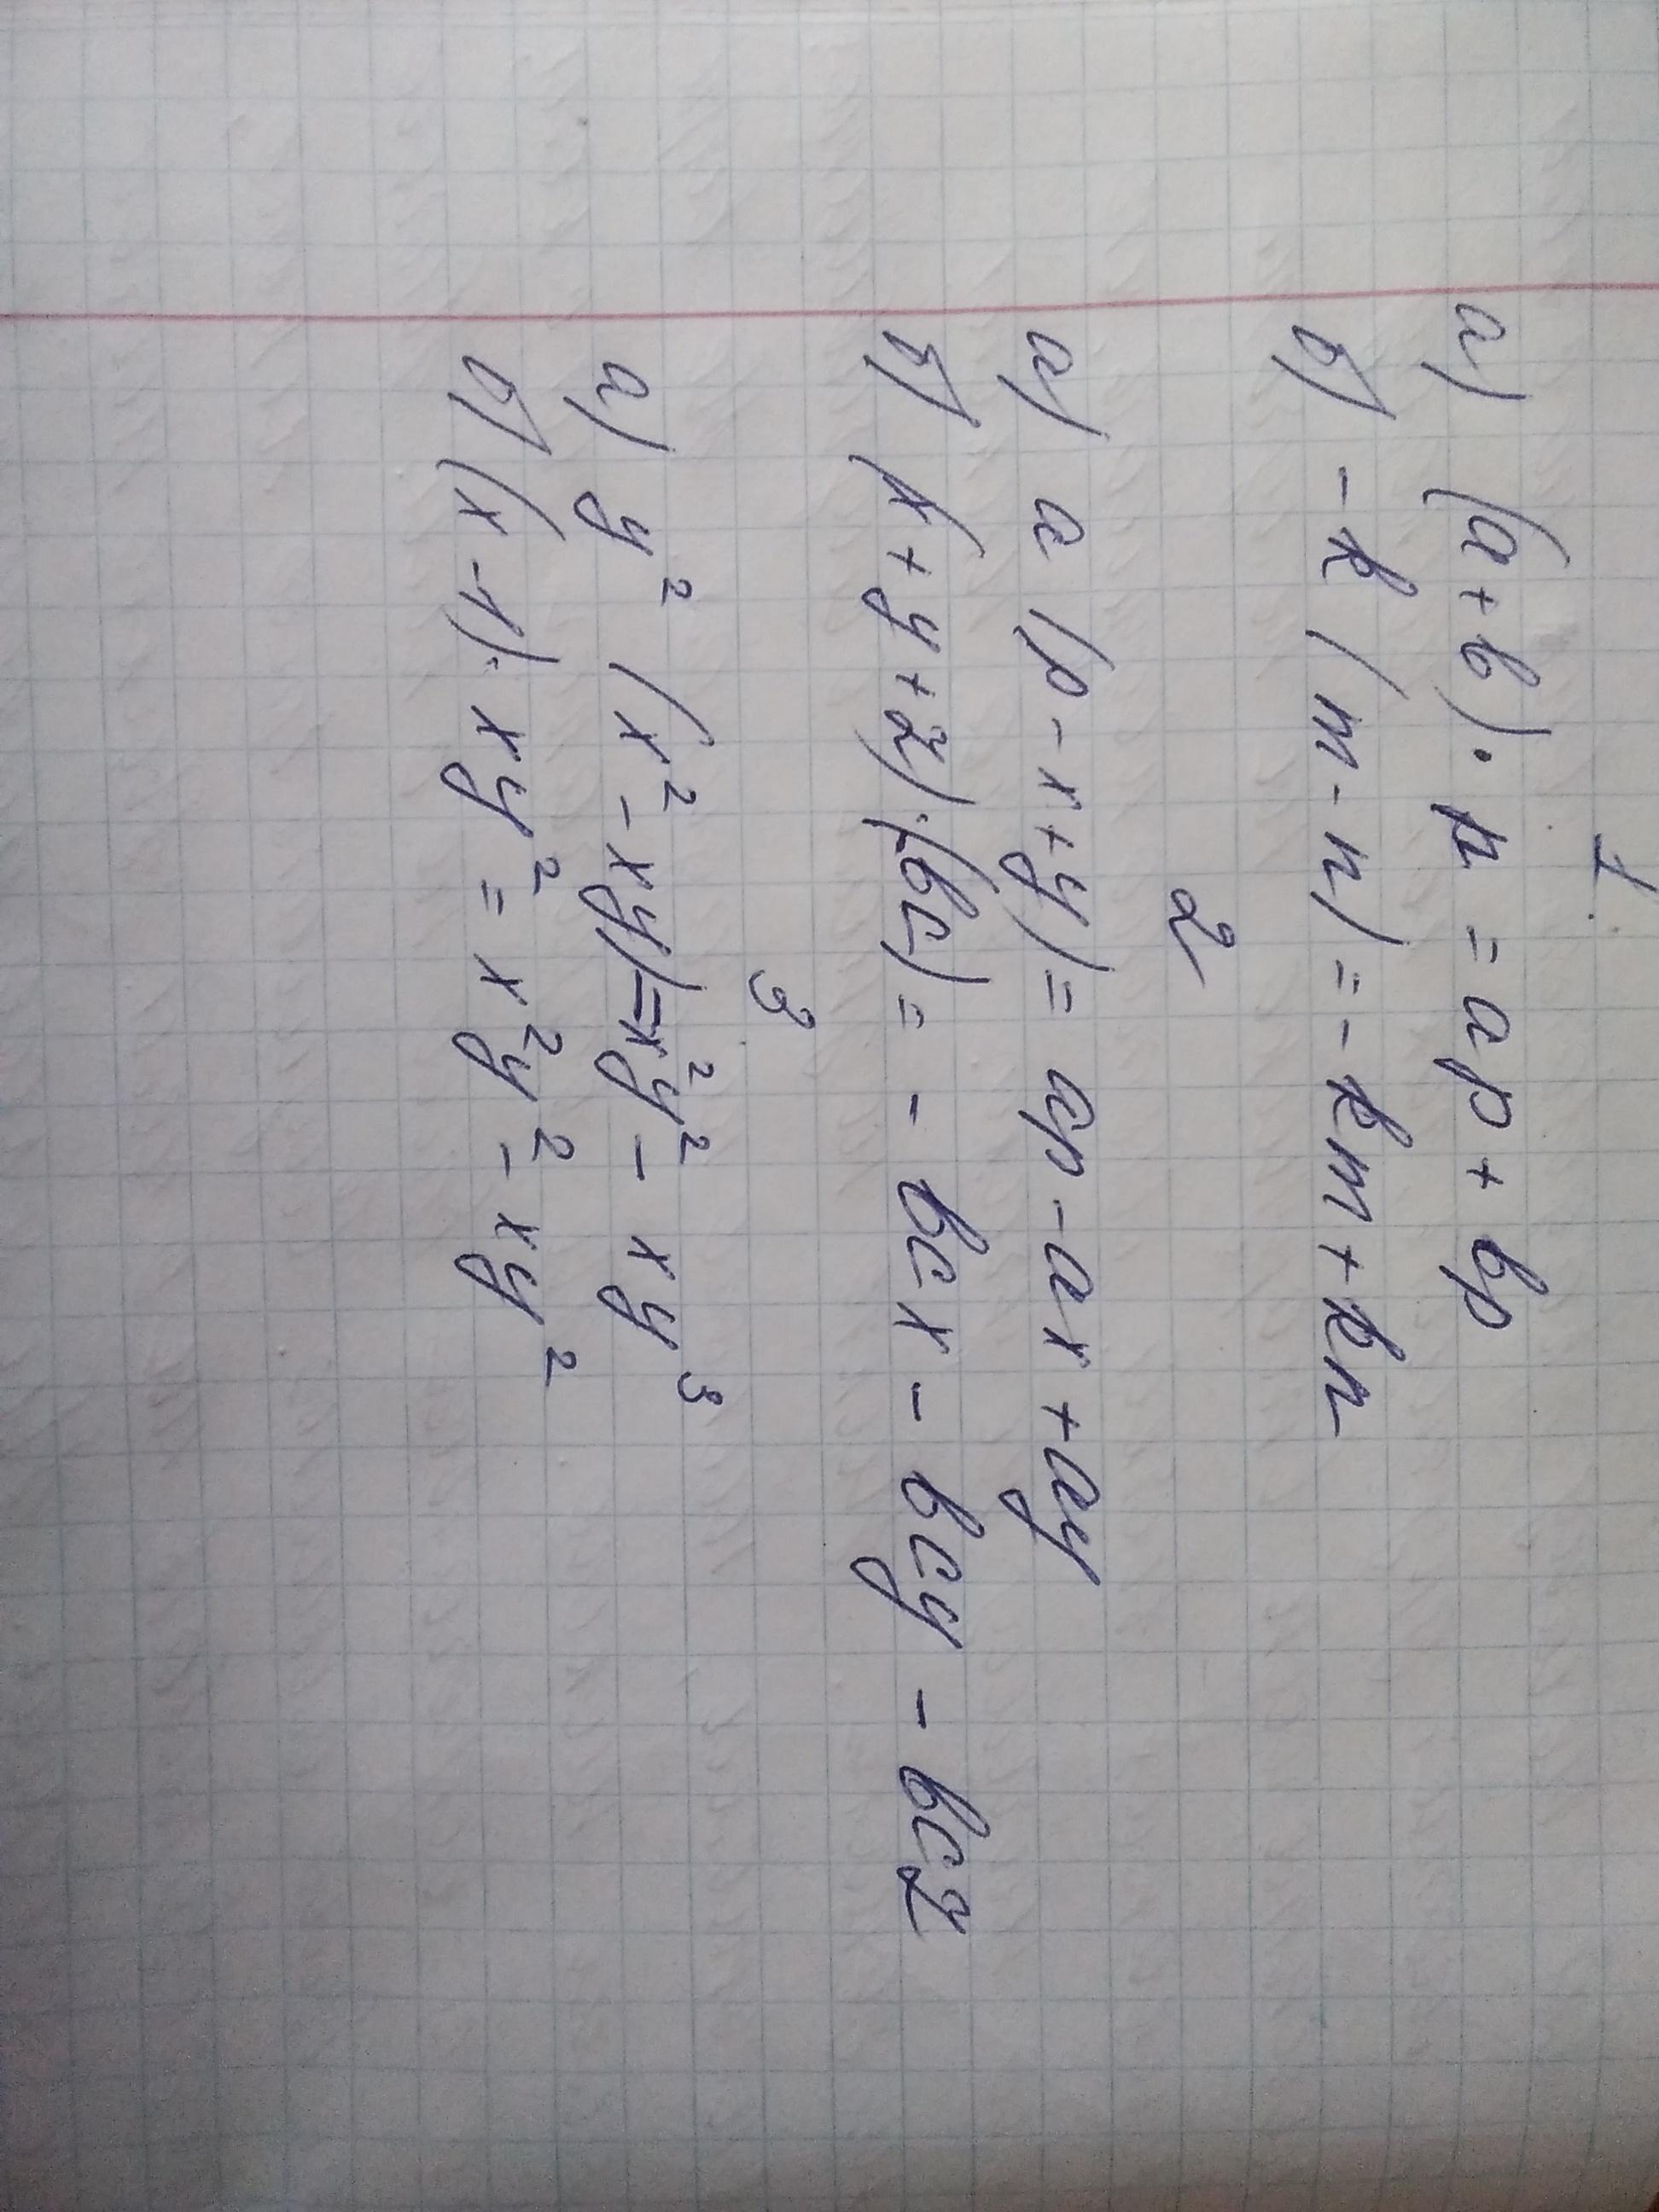 1.
а) (a+b)·p = ap + bp
б) -k (m-n) = -km + kn
2
а) a (p-x+y) = ap - ax + ay
б) (x+y+z)·(bc) = - bcx - bcy - bcz
3
а) y² (x² - xy) = x²y² - xy³
б) (x-1)· xy² = x²y² - xy²